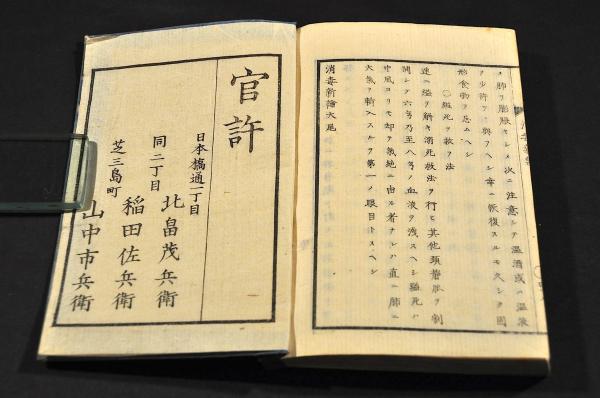 メ肺ヲ膨脹セシメ次ニ注意シテ温酒或ハ温液
ヲ少許ヅヽ與フヘシ幸ニ恢復スルモ久シク固
形食物ヲ忌ムヘシ
〇縊死ヲ救フ法
速ニ縊ヲ解キ溺死救法ヲ行ヒ其他頚静脉ヲ割
開シテ六弓乃至八弓ノ血液ヲ洩スヘシ縊死ハ
中風ヨリモ却テ氣絶ニ由ル者ナレハ直ニ肺ニ
大氣ヲ輸入スルヲ第一ノ眼目トスヘシ
消毒新論大尾
官許
日本橋通一丁目 北畠茂兵衛
同二丁目 稲田佐兵衛
芝三島町 山中市兵衛